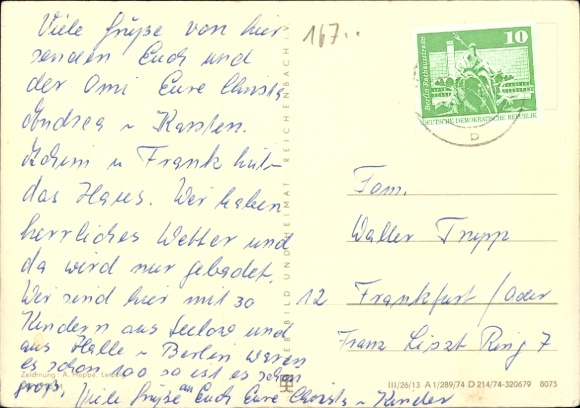 Viele Grüße von hier
senden Euch und
der Omi Eure Christa
Andrea u Karsten.
Achim u Frank hüt-
das Haus. Wir haben
herrliches Wetter und
da wird nur gebadet.
Wir sind hier mit 30
Kindern aus Seelow und
aus Halle u Berlin waren
es schon 100 so ist es schon
groß. Viele Grüße an Euch Eure Christa u Kinder
Zeichnung: A. Hoppe,
BILD UND HEIMAT REICHENBACH I. V.
167..
10
Berlin, Rathausstraße
DEUTSCHE DEMOKRATISCHE REPUBLIK
b
Fam.
Walter Trupp
12 Frankfurt/Oder
Franz Liszt Ring 7
III/26/13 A 1/289/74 D 214/74-320679 8075